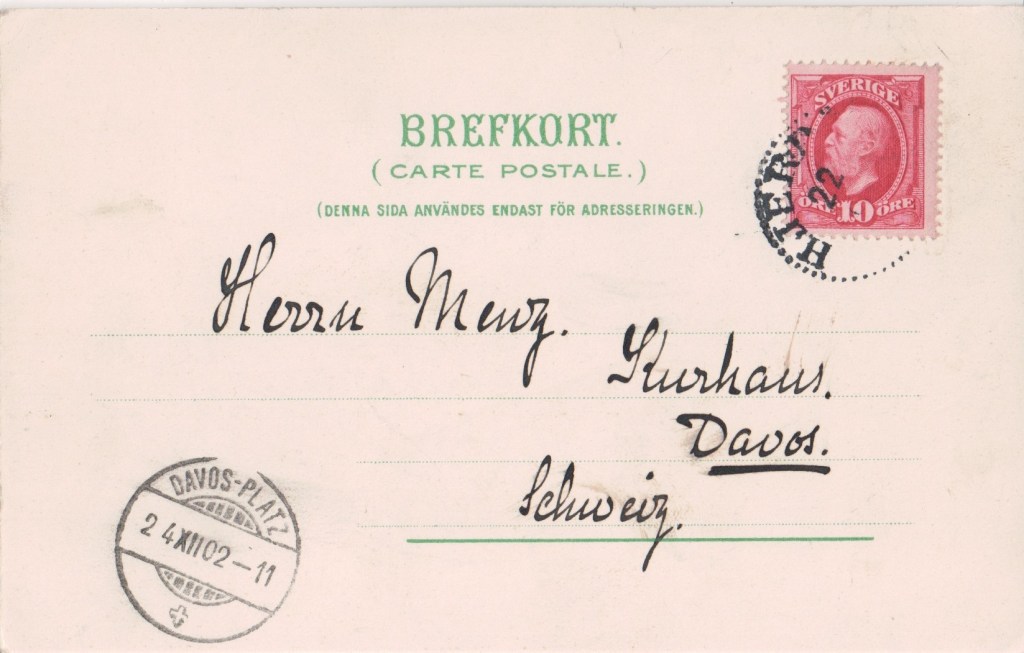 BREFKORT.
(CARTE POSTALE.)
(DENNA SIDA ANVÄNDES ENDAST FÖR ADRESSERINGEN.)
SVERIGE
ÖRE 10 ÖRE
22
Herrn Menz.
Kurhaus.
Davos.
Schweiz.
DAVOS-PLATZ
24 XII 02-11